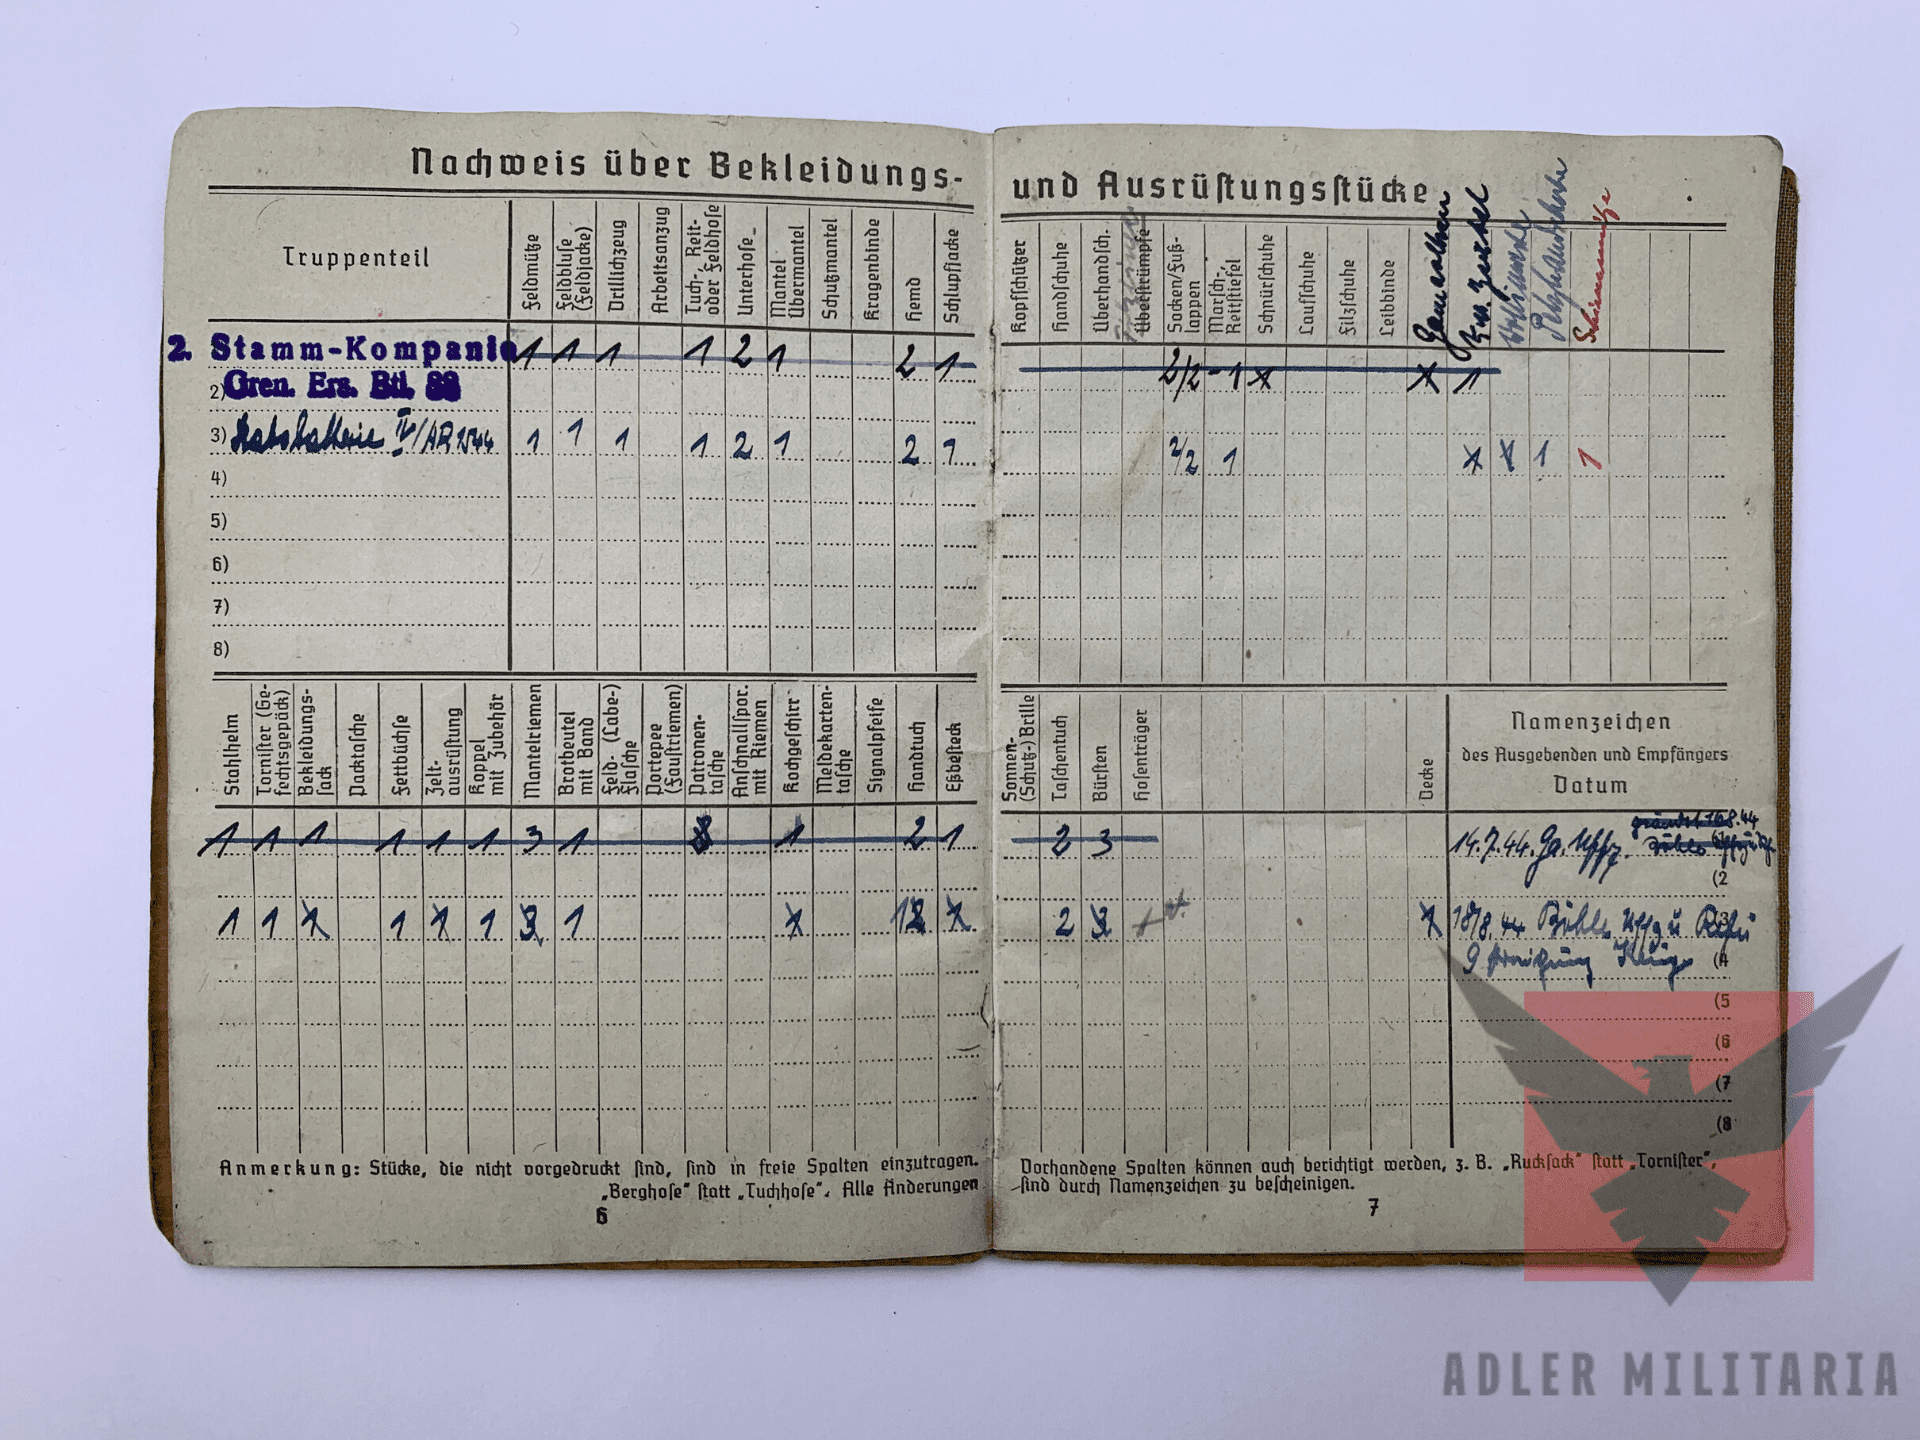 Nachweis über Bekleidungs-
und Ausrüstungsstücke
Truppenteil
Feldmütze
Feldbluse (Feldjacke)
Drillichzeug
Arbeitsanzug
Tuch-, Reit- oder Feldhose
Unterhose
Mantel Übermantel
Schutzmantel
Kragenbinde
Hemd
Schlupfjacke
Kopfschützer
Handschuhe
Überhandsch.
Überstrümpfe
Socken/Fuß-lappen
Marsch-, Reitstiefel
Schnürschuhe
Laufschuhe
Filzschuhe
Leibbinde
2. Stamm-Kompanie 1 1 1 1 2 1 2 1
2/2 - 1 x x 1
2) Gren. Ers. Btl. 88
3) Stabsbatterie IV/AR 1544 1 1 1 1 2 1 2 1
2/2 1 1 1
4)
5)
6)
7)
8)
Stahlhelm
Tornister (Ge-fechtsgepäck)
Bekleidungs-sack
Packtasche
Fettbüchse
Zelt-ausrüstung
Koppel mit Zubehör
Mantelriemen
Brotbeutel mit Band
Feld- (Labe-) Flasche
Portepee (Faustriemen)
Patronen-tasche
Anschnallspor. mit Riemen
Kochgeschirr
Meldekarten-tasche
Signalpfeife
Handtuch
Eßbesteck
Sonnen- (Schutz-) Brille
Taschentuch
Bürsten
Hosenträger
Decke
Namenzeichen
des Ausgebenden und Empfängers
Datum
1 1 1 1 1 1 3 1 1 2 1
2 3
14.7.44. Uffz.
(2
1 1 1 1
2
18/8.44
(3
(4
(5
(6
(7
(8
Anmerkung: Stücke, die nicht vorgedruckt sind, sind in freie Spalten einzutragen.
„Berghose“ statt „Tuchhose“. Alle Änderungen
6
Vorhandene Spalten können auch berichtigt werden, z. B. „Rucksack“ statt „Tornister“,
sind durch Namenzeichen zu bescheinigen.
7
ADLER MILITARIA